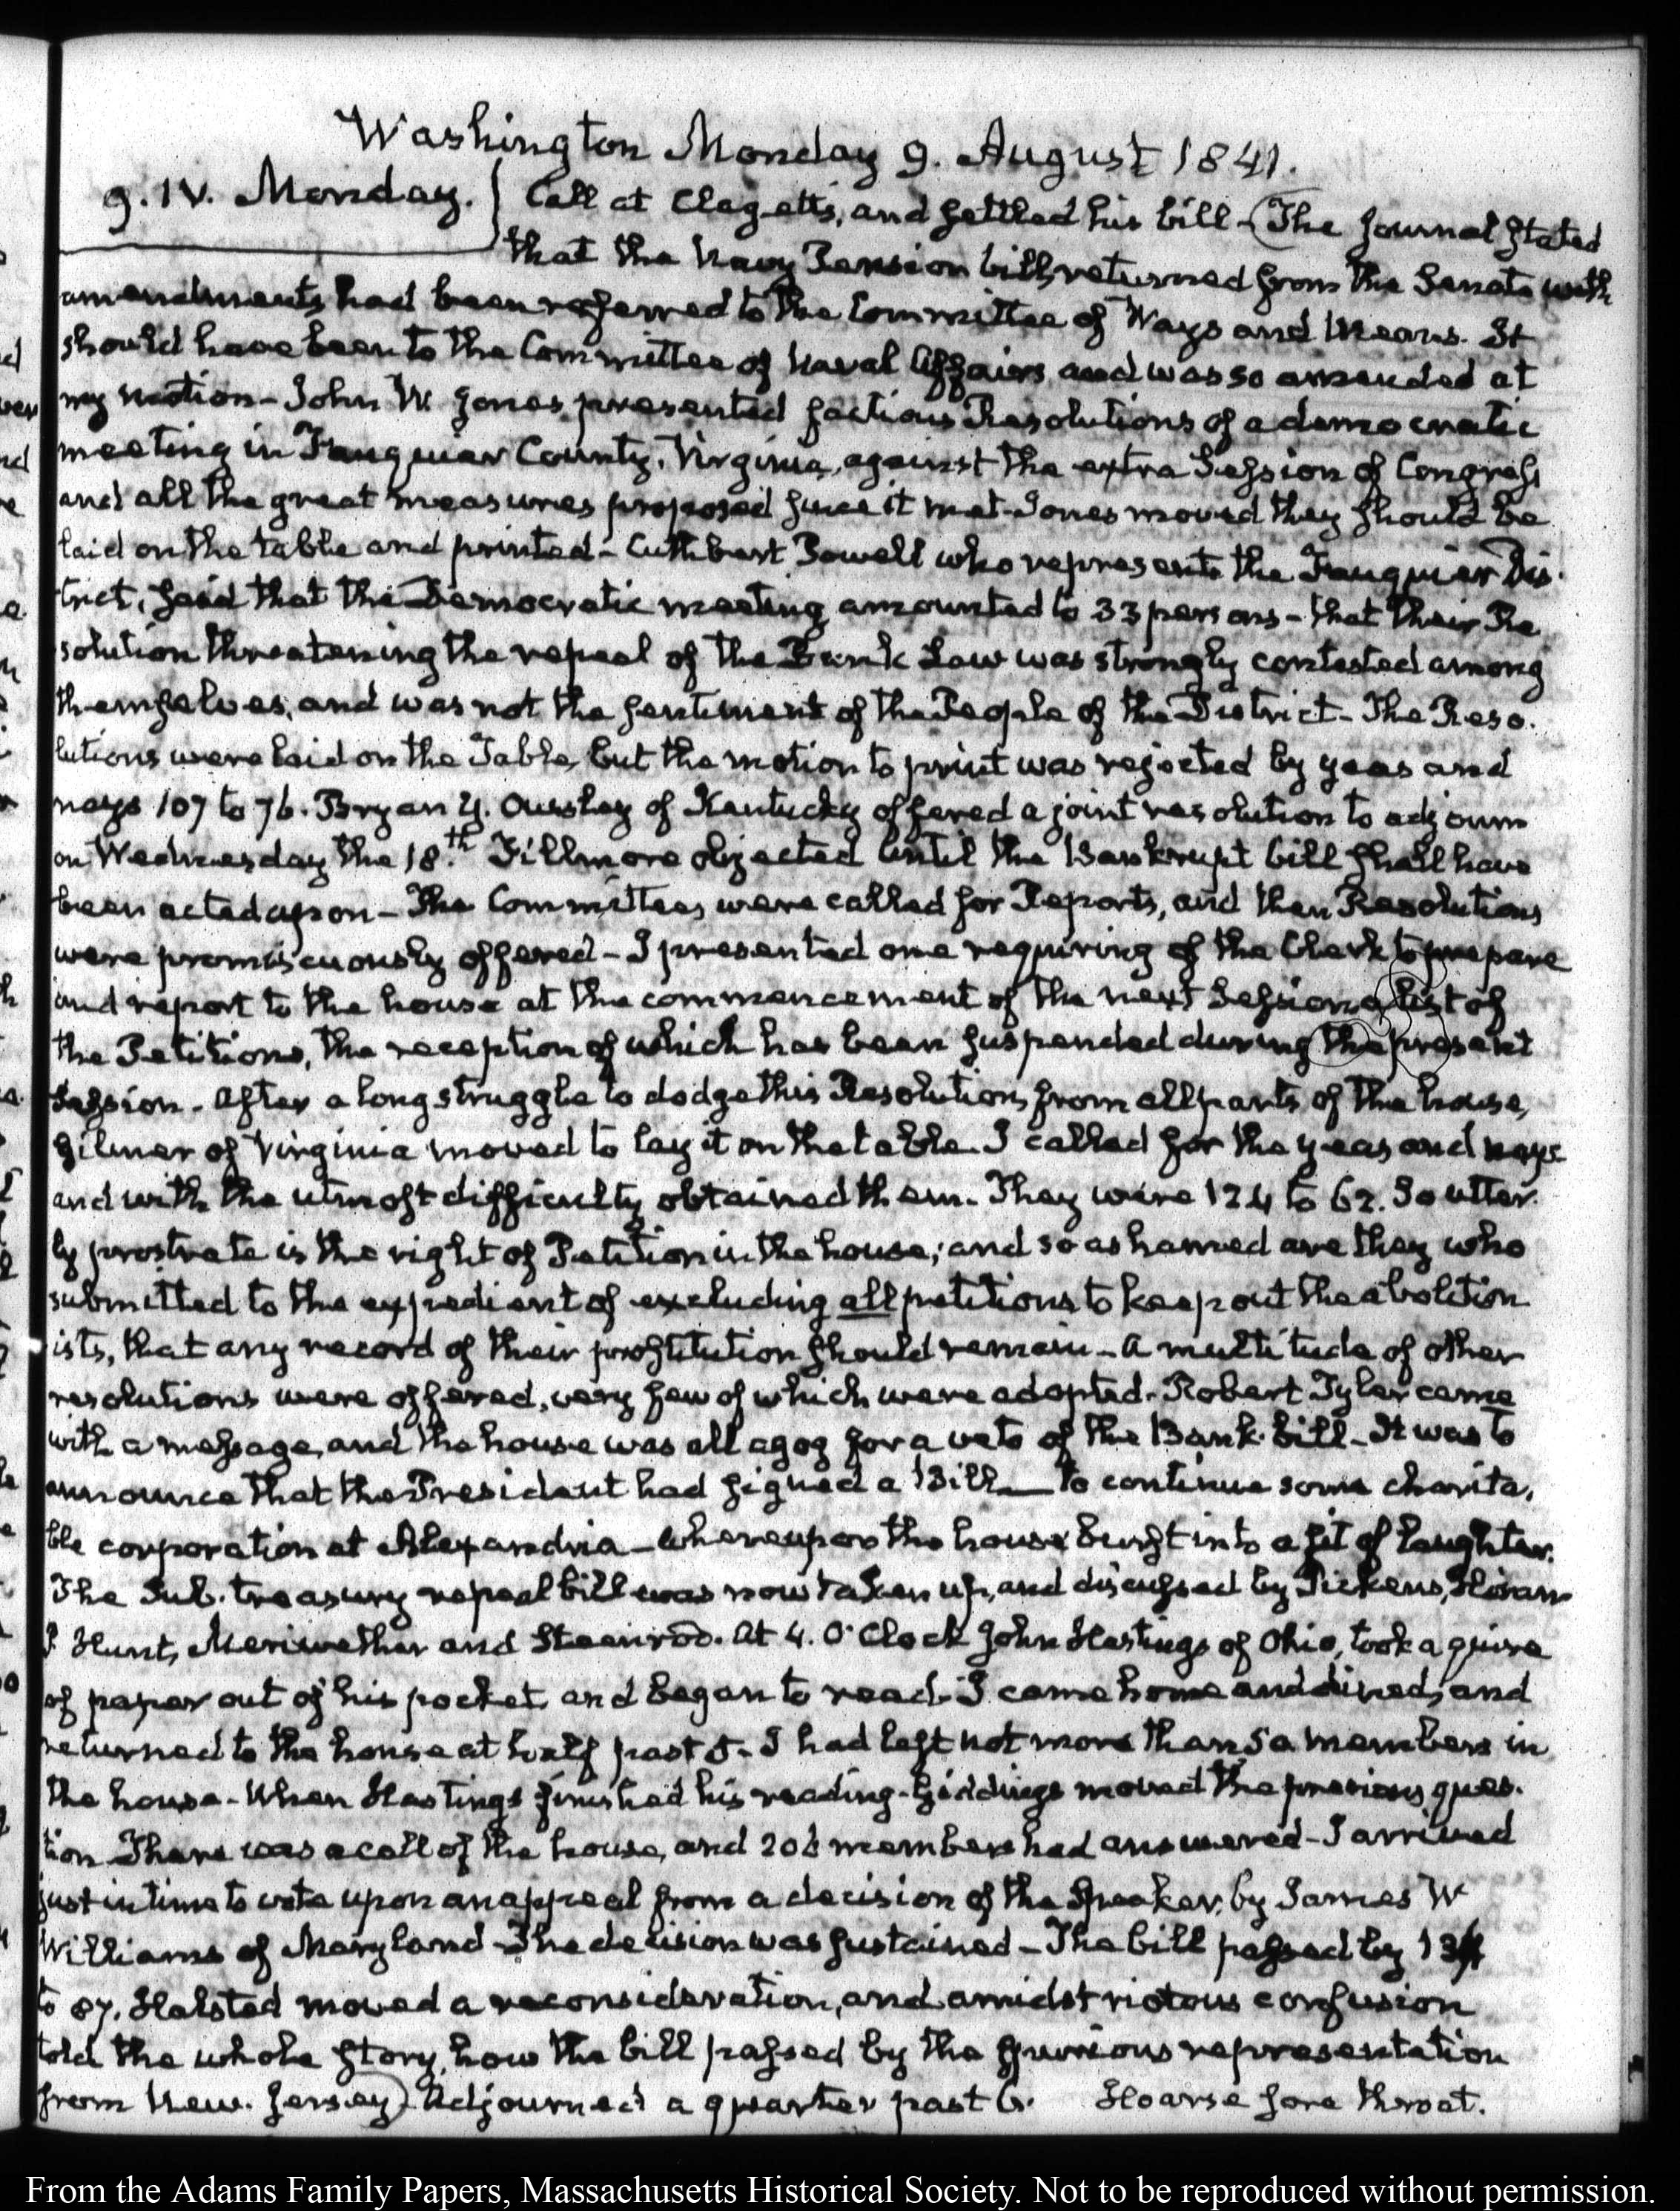 Washington Monday 9. August 1841.
9. IV. Monday. } Call at Clagett's, and settled his bill - (The Journal stated
that the Navy Pension bill, returned from the Senate with
amendments had been referred to the Committee of Ways and Means. It
should have been to the Committee of Naval Affairs and was so amended at
my motion - John W. Jones presented factious Resolutions of a democratic
meeting in Fauquier County, Virginia, against the extra Session of Congress
and all the great measures proposed since it met - Jones moved they should be
laid on the table and printed - Cuthbert Powell who represents the Fauquier Dis-
trict, said that the Democratic meeting amounted to 33 persons - that their Re
solution threatening the repeal of the Bank Law was strongly contested among
themselves, and was not the sentiment of the People of the District - The Reso-
lutions were laid on the Table, but the motion to print was rejected by yeas and
nays 107 to 76. Bryan Y. Owsley of Kentucky offered a joint resolution to adjourn
on Wednesday the 18.th Fillmore objected until the Bankrupt bill shall have
been acted upon - The Committees were called for Reports, and then Resolutions
were promiscuously offered - I presented one requiring of the Clerk to prepare
and report to the house at the commencement of the next Session a list of
the Petitions, the reception of which has been suspended during the present
Session. After a long struggle to dodge this Resolution, from all parts of the house,
Gilmer of Virginia moved to lay it on the table. I called for the yeas and nays
and with the utmost difficulty obtained them. They were 124 to 62. So utter-
ly prostrate is the right of Petition in the house; and so ashamed are they who
submitted to the expedient of excluding all petitions to keep out the abolition
ists, that any record of their prostitution should remain - A multitude of other
resolutions were offered, very few of which were adopted. Robert Tyler came
with a message, and the house was all agog for a veto of the Bank bill - It was to
announce that the President had signed a Bill — to continue some charita-
ble corporation at Alexandria - whereupon the house burst into a fit of laughter.
The Sub. treasury repeal bill was now taken up, and discussed by Pickens, Hiram
P Hunt, Meriwether and Steenrod. At 4. O'Clock John Hastings of Ohio, took a quire
of paper out of his pocket and began to read. I came home and dined, and
returned to the house at half past 5. I had left not more than 50 members in
the house - When Hastings finished his reading - Giddings moved the previous ques-
tion There was a call of the house, and 206 members had answered - I arrived
just in time to vote upon an appeal from a decision of the Speaker, by James W
Williams of Maryland - The decision was sustained - The bill passed by 134
to 87. Halsted moved a reconsideration, and amidst riotous confusion
told the whole story, how the bill passed by the spurious representation
from New. Jersey) Adjourned a quarter past 6. Hoarse sore throat.
From the Adams Family Papers, Massachusetts Historical Society. Not to be reproduced without permission.